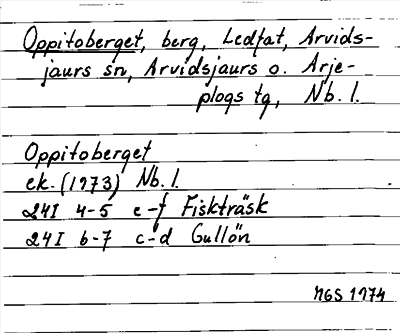 Oppitoberget, berg, Ledfat, Arvids-
jaurs sn, Arvidsjaurs o. Arje-
plogs tg, Nb. l.
Oppitoberget
ek. (1973) Nb. l.
24I 4-5 e-f Fiskträsk
24I 6-7 c-d Gullön
NGS 1974